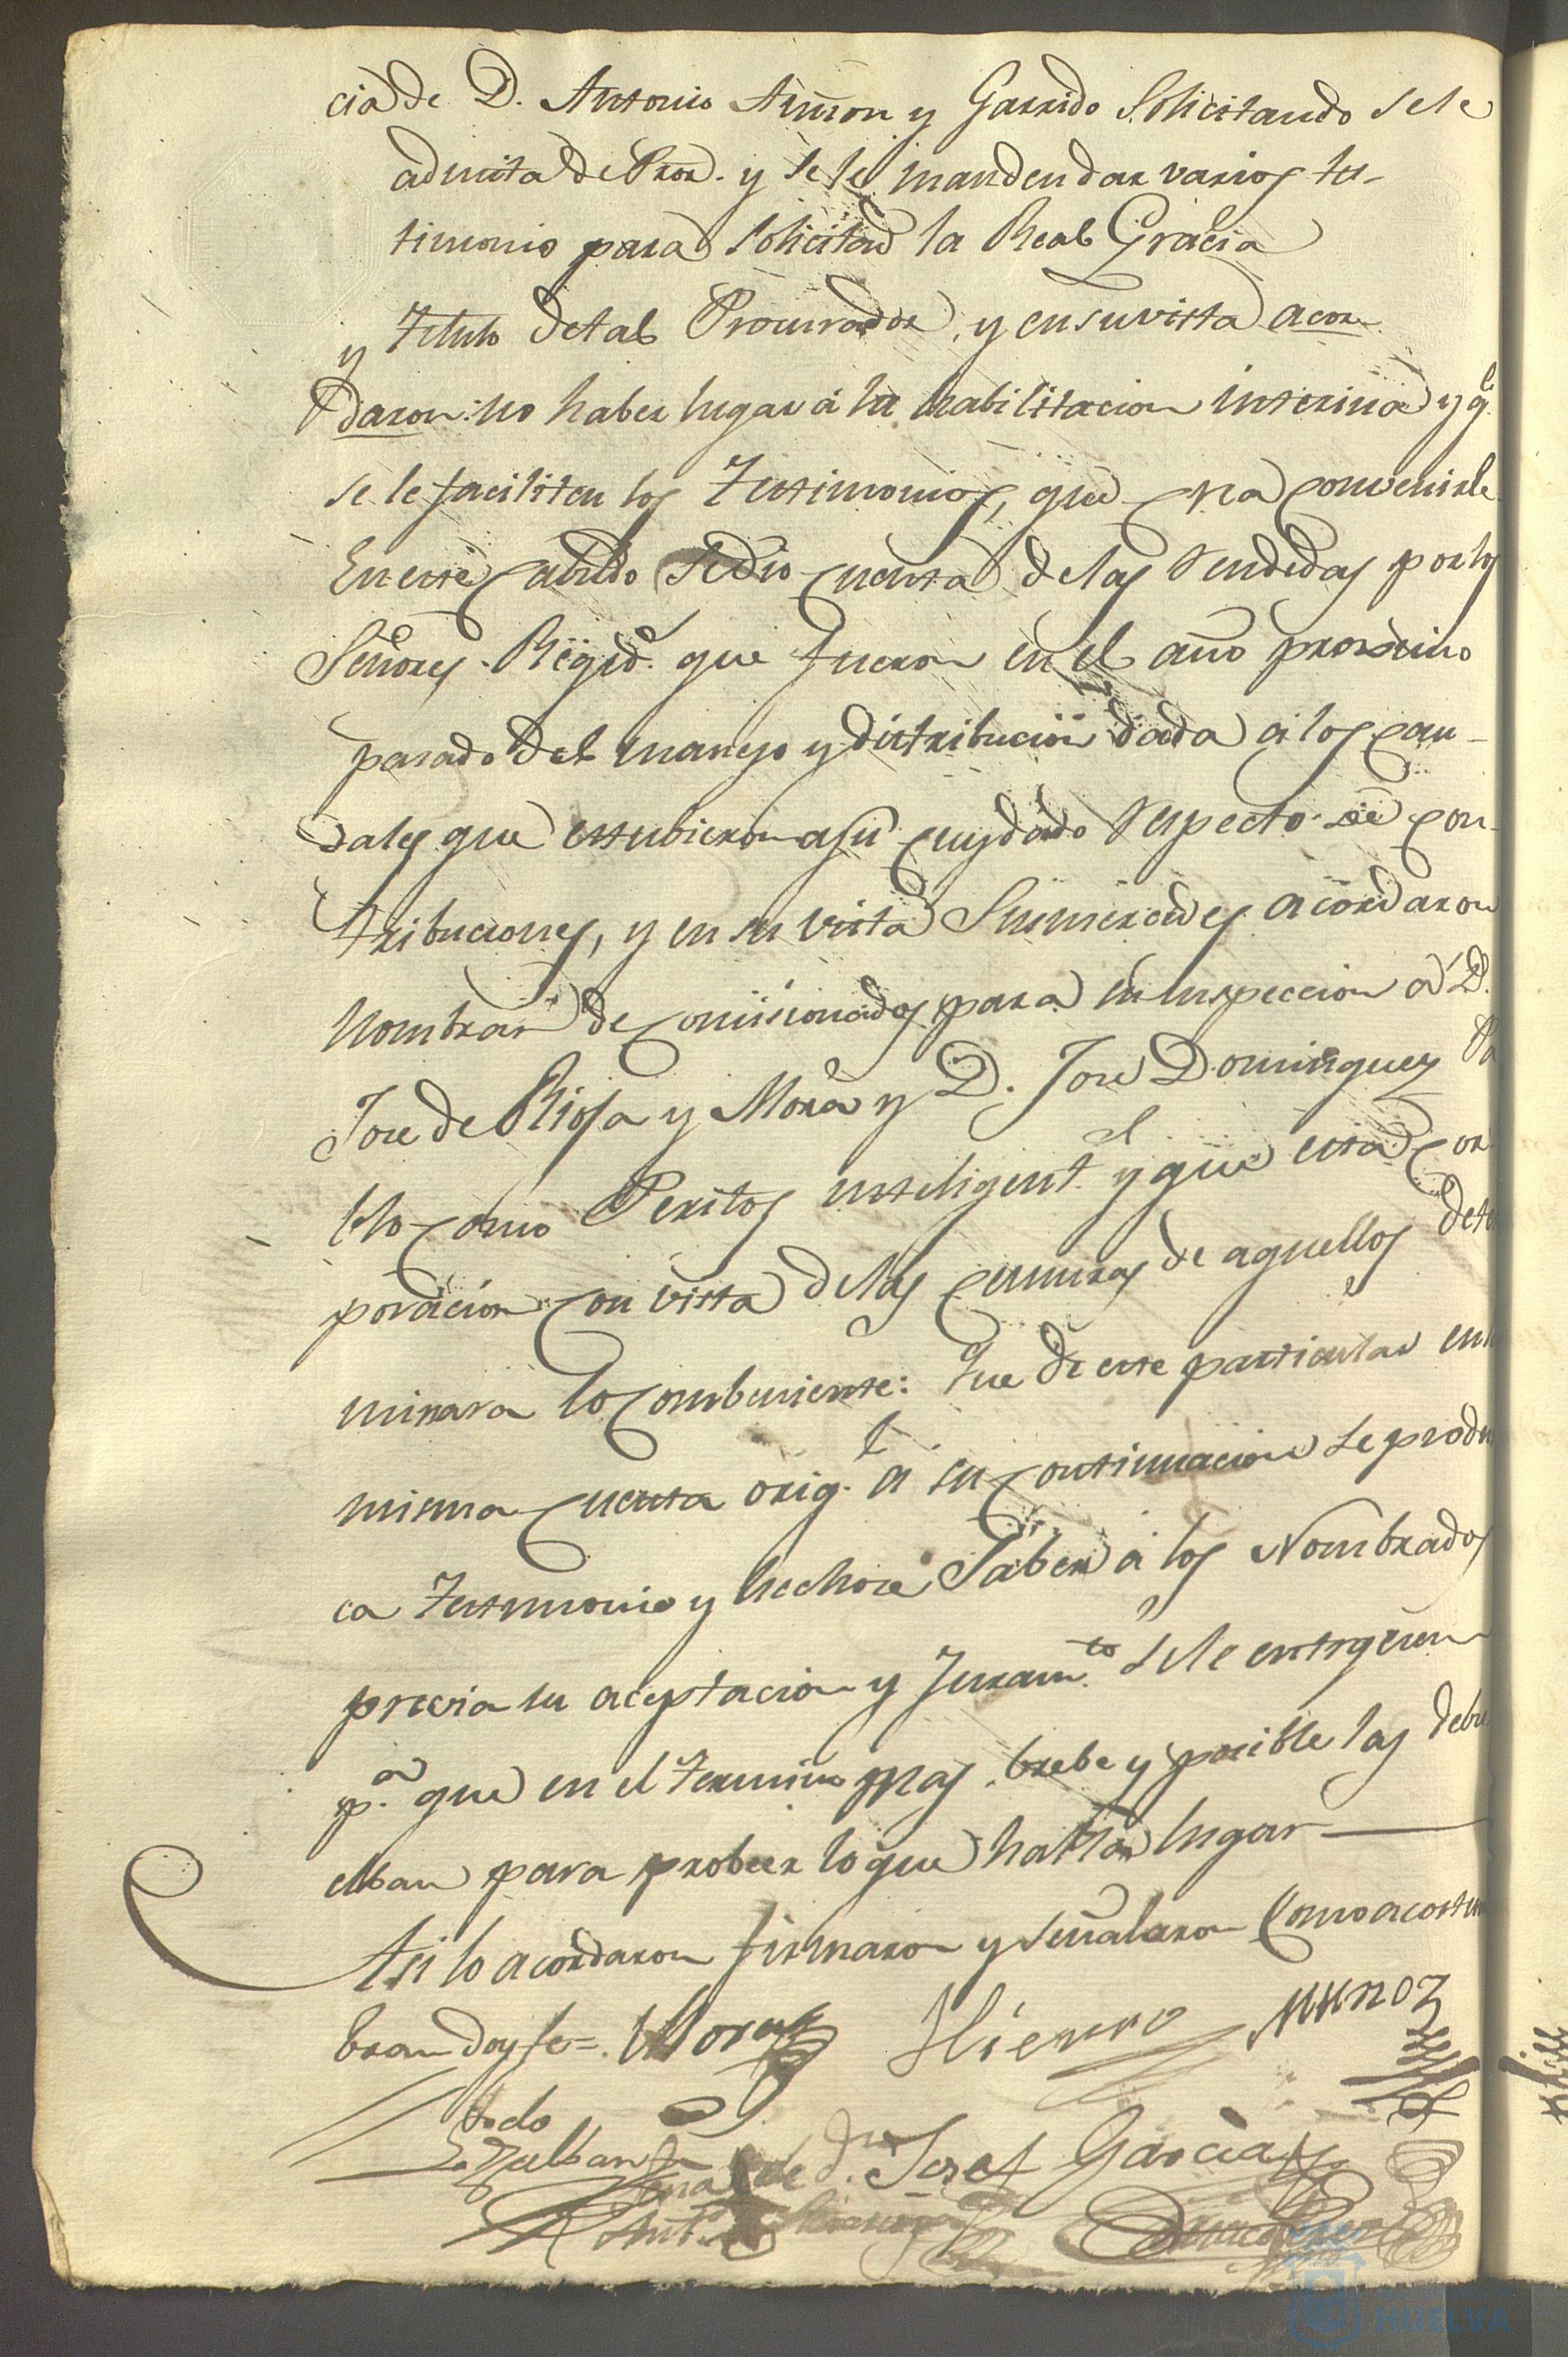 cia de D. Antonio Asmon y Garrido Solicitando sele
admita de Pror. y se le manden dar varios tes-
timonio para solicitar la Real Gracia
y Titulo de tal Procurador, y en su vista acor-
daron: no haber lugar á la habilitacion interina y q.e
se le faciliten los Testimonios, que crea convenirle
En este cabildo se dio cuenta de las rendidas por los
Señores Regid.s que fueron en el año proximo
pasado del manejo y distribucion dada á los cau-
dales que estubieron a su cuydado respecto de con-
tribuciones, y en su vista Sus mercedes acordaron
Nombrar de comisionados para su inspeccion a D.
Jose de Rioja y Mora y D. Jose Dominguez Pa
blo como Peritos inteligent.s y que esta cor
poracion con vista de las censuras de aquellos dete
minara lo combeniente: Que de este particular en l
misma cuenta orig.l á su continuacion se produ
ca Testimonio y hechose saber á los Nombrados
precia su aceptacion y Juram.to se le entreguen
p.a que en el termino mas brebe y posible las debu
elban para probeer lo que halla lugar
Asi lo acordaron firmaron y señalaron como acostum
bran doy fe=. Mora Hierro Muñoz
Señal de Jph Josef Garcia
Ant.o
HUELVA